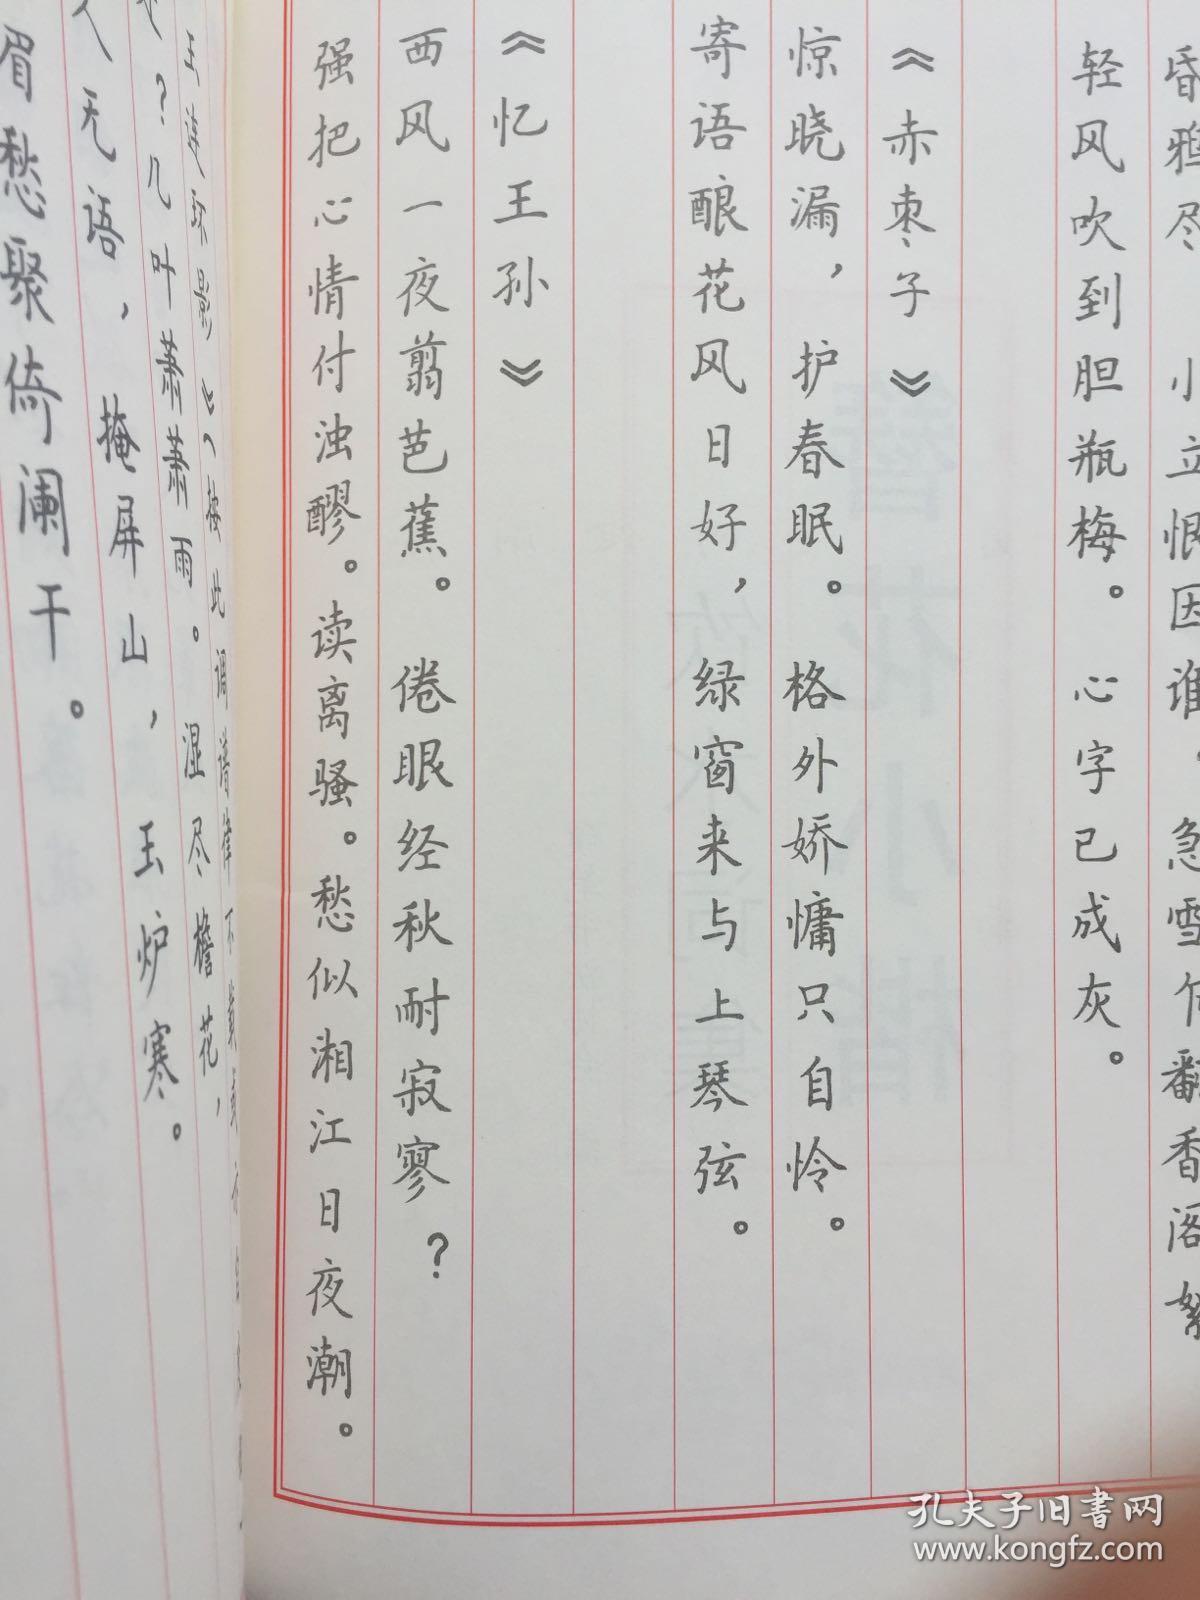 昏鸦尽 小立恨因谁，急雪
香阁絮
轻风吹到胆瓶梅。心字已成灰。
《赤枣子》
惊晓漏，护春眠。格外娇慵只自怜。
寄语酿花风日好，绿窗来与上琴弦。
《忆王孙》
西风一夜翦芭蕉。倦眼经秋耐寂寥？
强把心情付浊醪。读离骚。愁似湘江日夜潮。
玉连环影》（按此调谱律不载
？几叶萧萧雨。湿尽檐花，
人无语，掩屏山，玉炉寒。
眉愁聚倚阑干。
孔夫子旧書网
www.kongfz.com